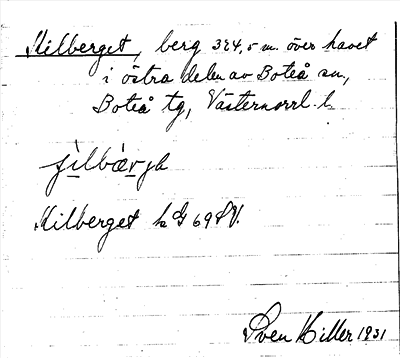 Kilberget, berg 324,5 m. över havet
i östra delen av Boteå sn,
Boteå tg, Västernorrl. l.
Kilberget h G 69 SV.
Sven Hiller 1931